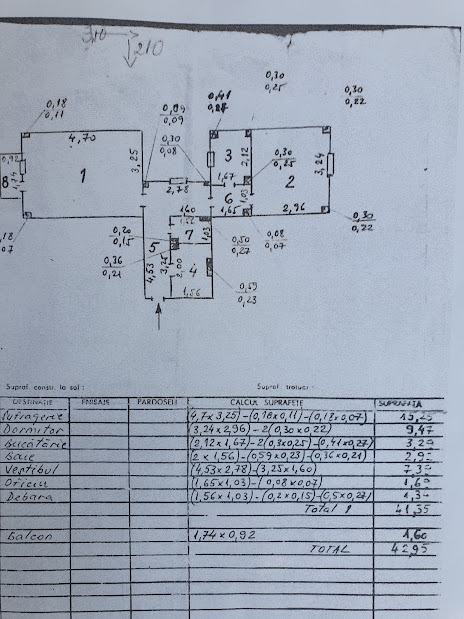 3,10
210
0,18
0,11
4,70
0,09
0,09
0,30
0,08
0,41
0,27
0,30
0,25
0,30
0,22
0,92
8
1,74
1
3,25
2,78
3
2,12
1,67
0,30
0,25
2
3,24
6
1,03
1,65
2,96
0,30
0,22
0,08
0,07
18
07
160
7
1,03
0,50
0,27
0,20
0,15
5
0,36
0,21
4,53
3,25
2,00
4
1,56
0,59
0,23
Supraf. constr. la sol :
DESTINATIE FINISAJE PARDOSELI CALCUL SUPRAFETE SUPRAFATA
Sufragerie (4,7x3,25)-(0,18x0,11)-(0,18x0,07) 15,25
Dormitor (3,24x2,96)-2(0,30x0,22) 9,47
Bucătărie (2,12x1,67)-2(0,3x0,25)-(0,41x0,27) 3,29
Baie (2x1,56)-(0,59x0,23)-(0,36x0,21)
Vestibul (4,53x2,78)-(3,25x1,60) 7,39
Oficiu (1,65x1,03)-(0,08x0,07) 1,69
Debara (1,56x1,03)-(0,2x0,15)-(0,5x0,27)
Total 1 41,35
Balcon 1,74x0,92 1,60
TOTAL 42,95